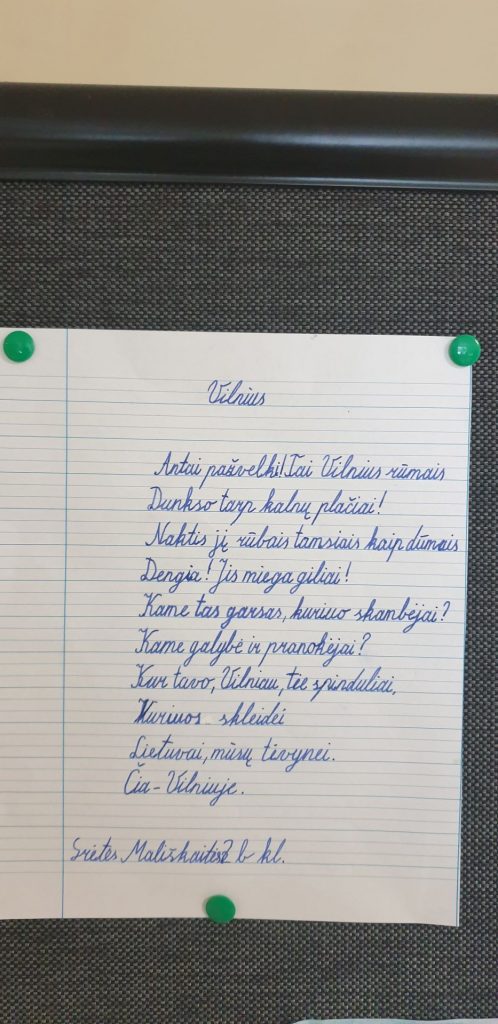 Vilnius
Antai pažvelki! Tai Vilnius rūmais
Dunkso tarp kalnų plačiai!
Naktis jį rūbais tamsiais kaip dūmais
Dengia! Jis miega giliai!
Kame tas garsas, kuriuo skambėjai?
Kame galybė ir pranokėjai?
Kur tavo, Vilniau, tie spinduliai,
Kuriuos skleidei
Lietuvai, mūsų tėvynei.
Čia - Vilniuje.
2 b kl.